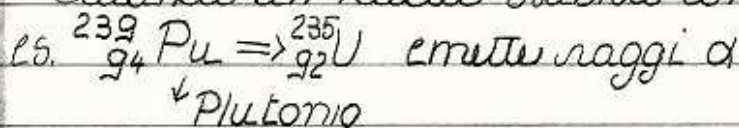 es. ²³⁹₉₄Pu => ²³⁵₉₂U emette raggi α
↓ Plutonio